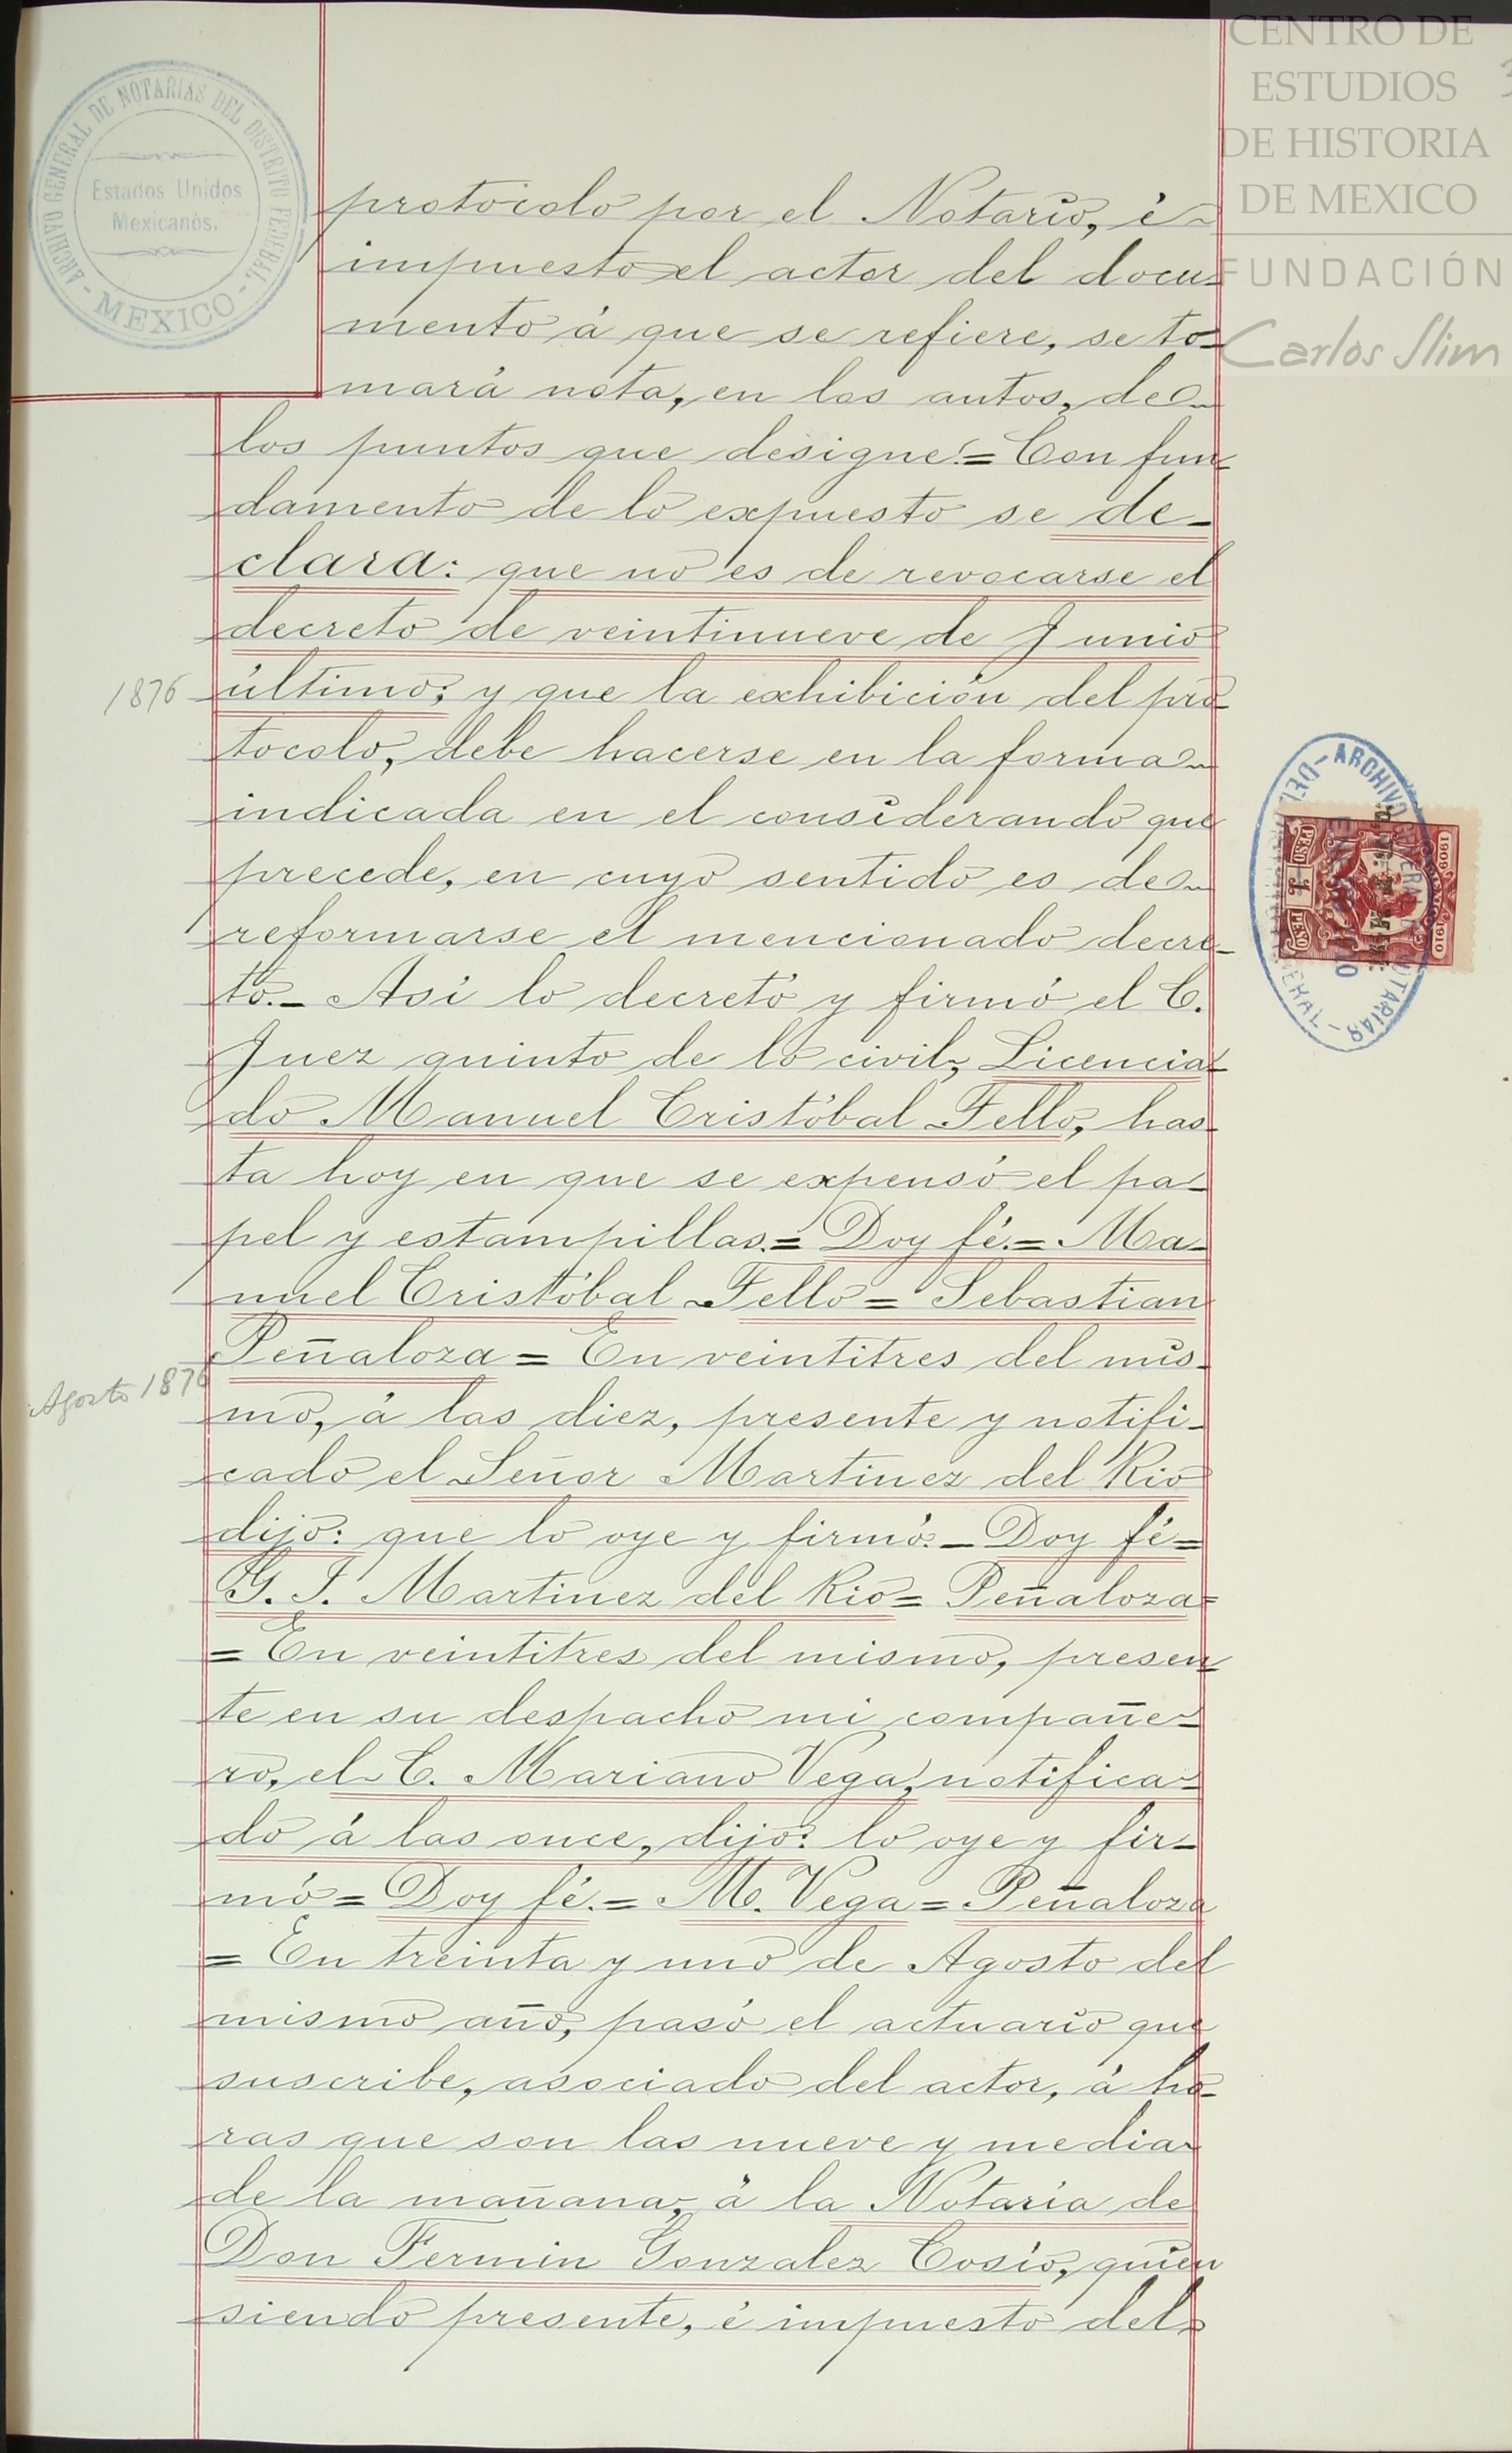 CENTRO DE
ESTUDIOS
DE HISTORIA
DE MEXICO
FUNDACIÓN
Carlos Slim
ARCHIVO GENERAL DE NOTARIAS DEL DISTRITO FEDERAL
Estados Unidos
Mexicanos.
- MEXICO -
protocolo por el Notario, é
impuesto el actor del docu-
mento á que se refiere, se to-
mará nota, en los autos, de
los puntos que designe.= Con fun-
damento de lo expuesto se de-
clara: que no es de revocarse el
decreto de veintinueve de Junio
1876
último; y que la exhibición del pro-
tocolo, debe hacerse en la forma
indicada en el considerando que
precede, en cuyo sentido es de
reformarse el mencionado decre-
to.- Así lo decretó y firmó el C.
Juez quinto de lo civil, Licencia-
do Manuel Cristóbal Tello, has-
ta hoy en que se expensó el pa-
pel y estampillas.= Doy fé.= Ma-
nuel Cristóbal Tello = Sebastian
Peñaloza = En veintitres del mis-
Agosto 1876
mo, á las diez, presente y notifi-
cado el Señor Martinez del Rio
dijo: que lo oye y firmó.- Doy fé=
G. I. Martinez del Rio= Peñaloza=
= En veintitres del mismo, presen-
te en su despacho mi compañe-
ro, el C. Mariano Vega, notifica-
do á las once, dijo: lo oye y fir-
mó = Doy fé.= M. Vega = Peñaloza
= En treinta y uno de Agosto del
mismo año, pasó el actuario que
suscribe, asociado del actor, á ho-
ras que son las nueve y media
de la mañana, á la Notaría de
Don Fermin Gonzalez Cosío, quien
siendo presente, é impuesto del
1909
1910
PESO 1 PESO